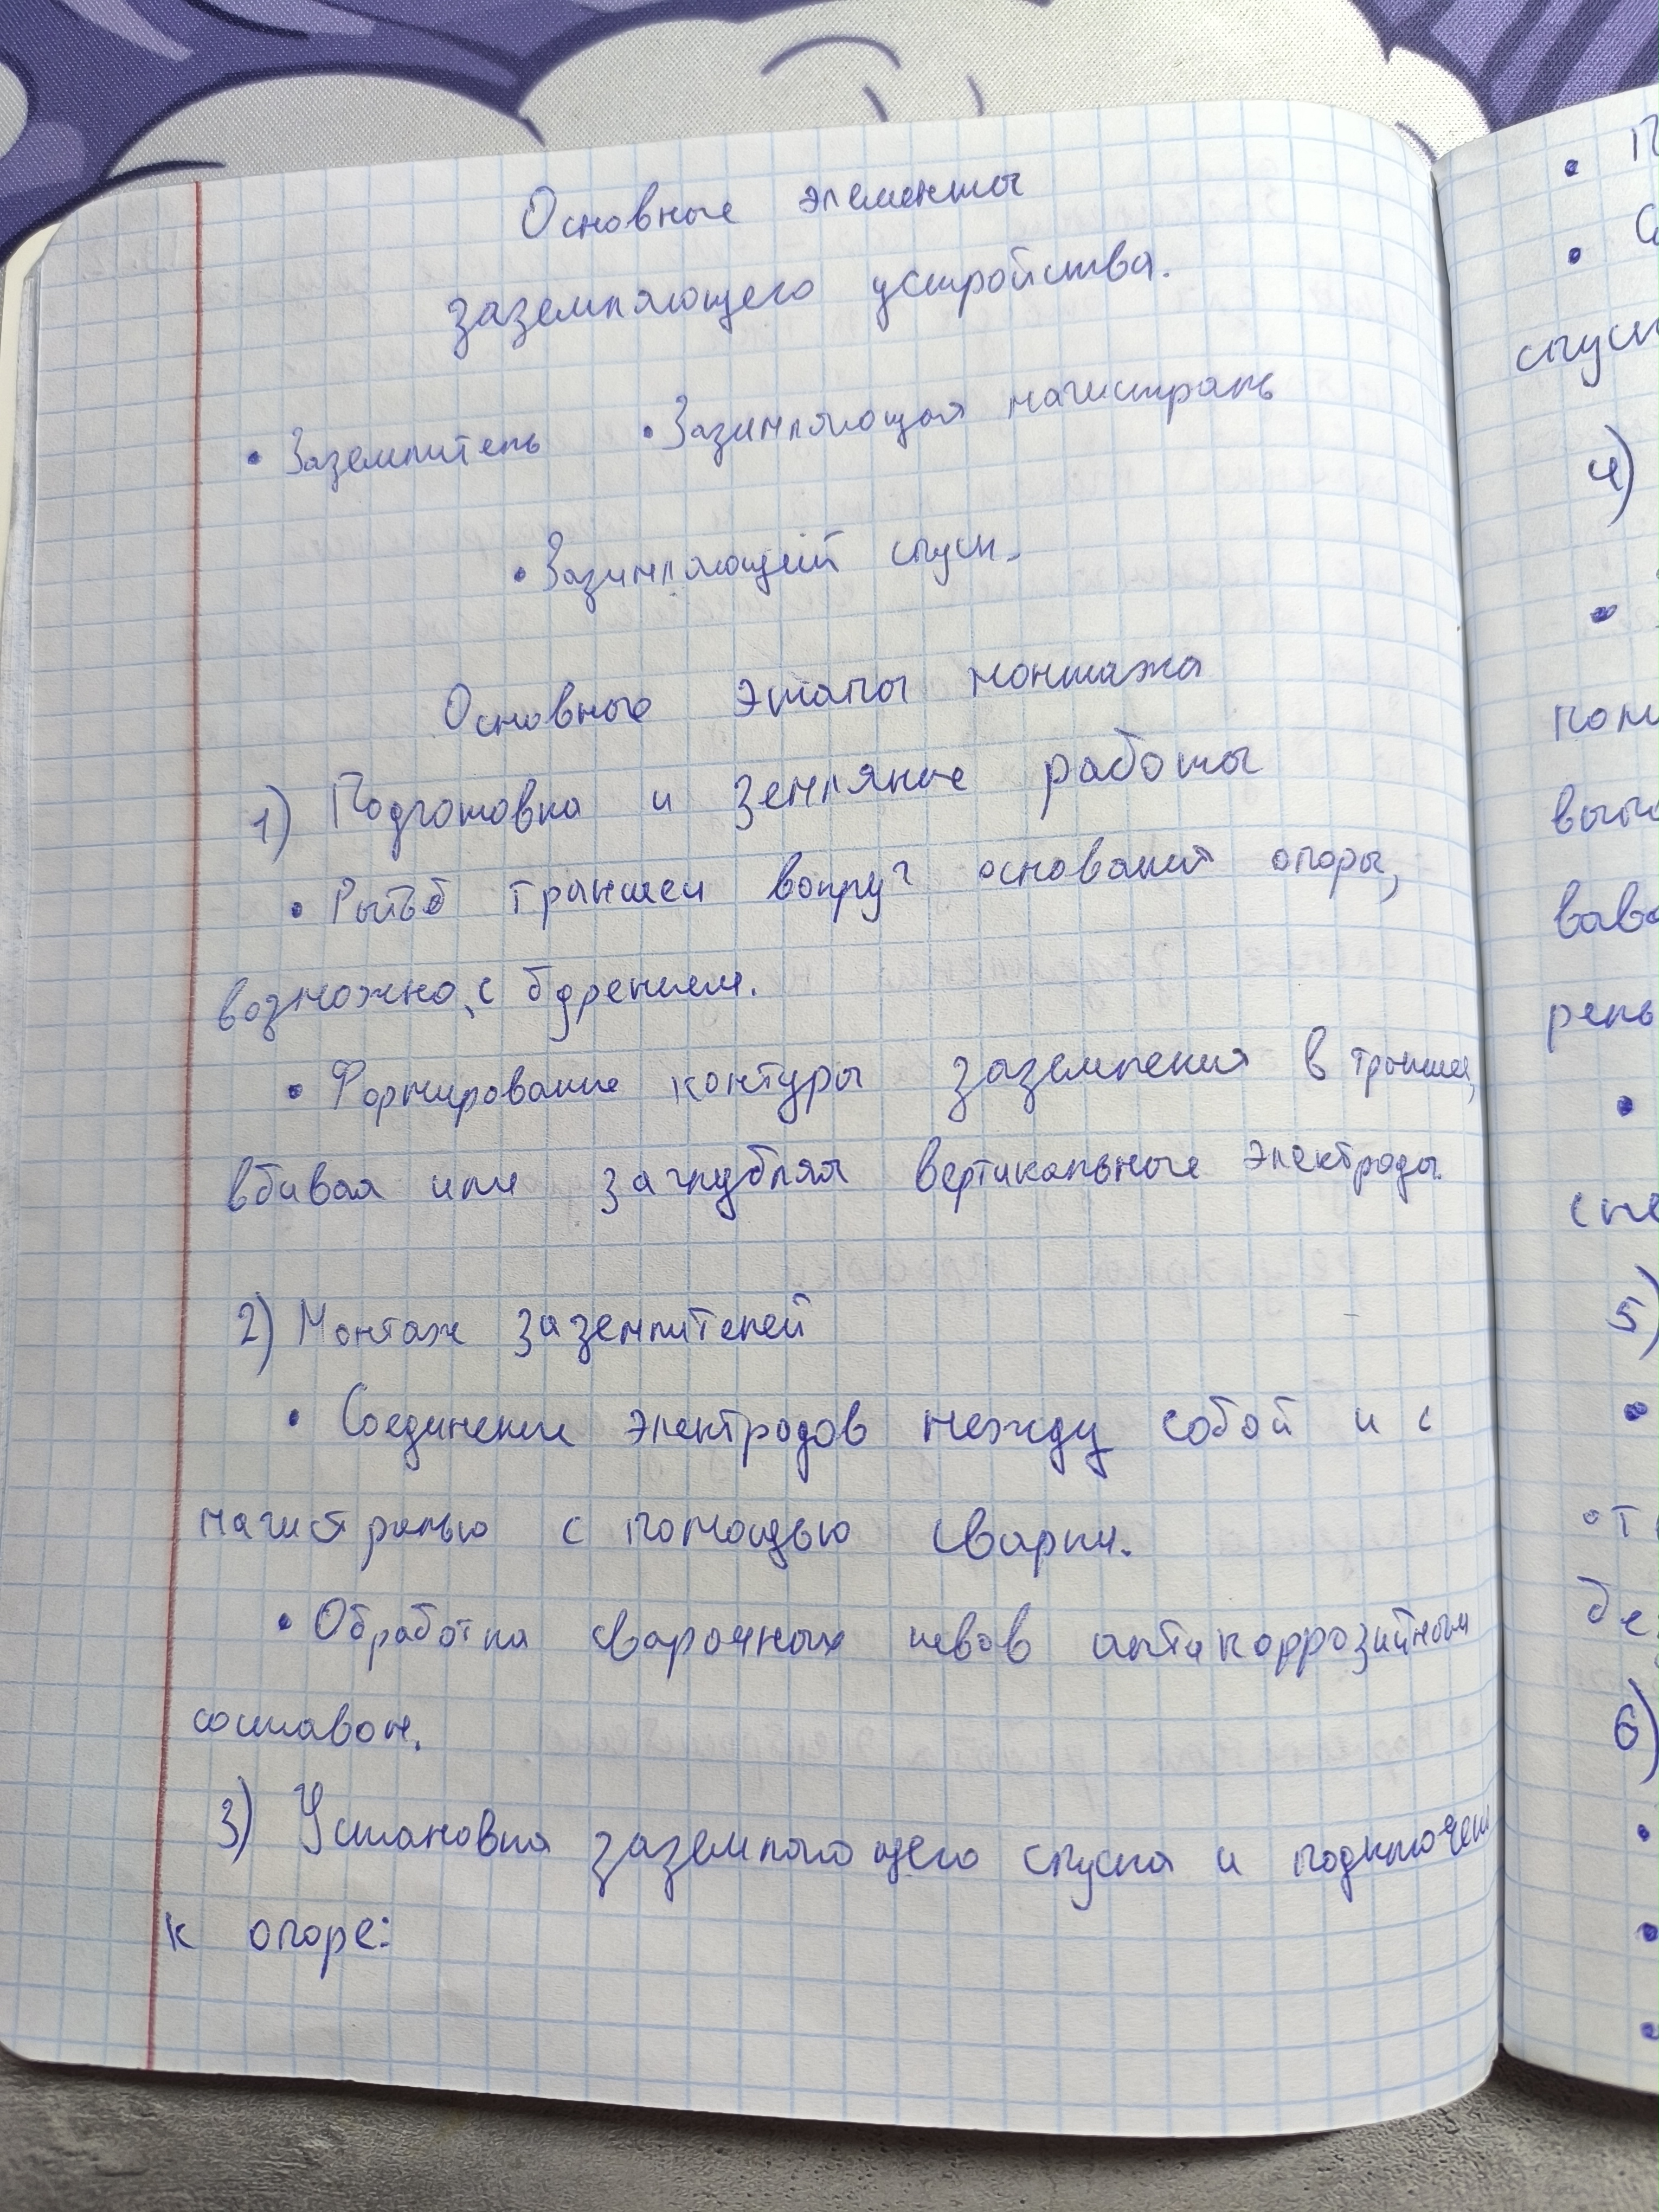 Основные элементы
заземляющего устройства.
• Заземлитель • Зазимляющая магистраль
• Зазимляющей спуск.
Основные этапы монтажа
1) Подготовка и земляные работы
• Рытьё траншеи вокруг основания опоры,
возможно, с бурением.
• Формирование контуры заземления в траншеи,
вбивая или заглубляя вертикальные электроды.
2) Монтаж заземлителей
• Соединение электродов между собой и с
магистралью с помощью сварки.
• Обработка сварочных швов антикоррозийным
составом.
3) Установка заземляющего спуска и подключени
к опоре:
• П
• С
спуск
4)
•
поли
выпо
рель
•
спе
5)
•
от
без
6)
•
•
•